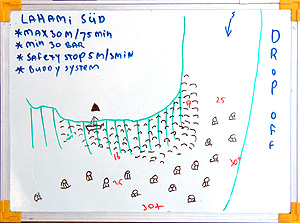 LAHAMI SÜD
* MAX 30 M/75 min
* min 30 BAR
* SAFETY STOP 5 M/3 MIN
* BUDDY SYSTEM
DROP OFF
25
30+
18
25
30+